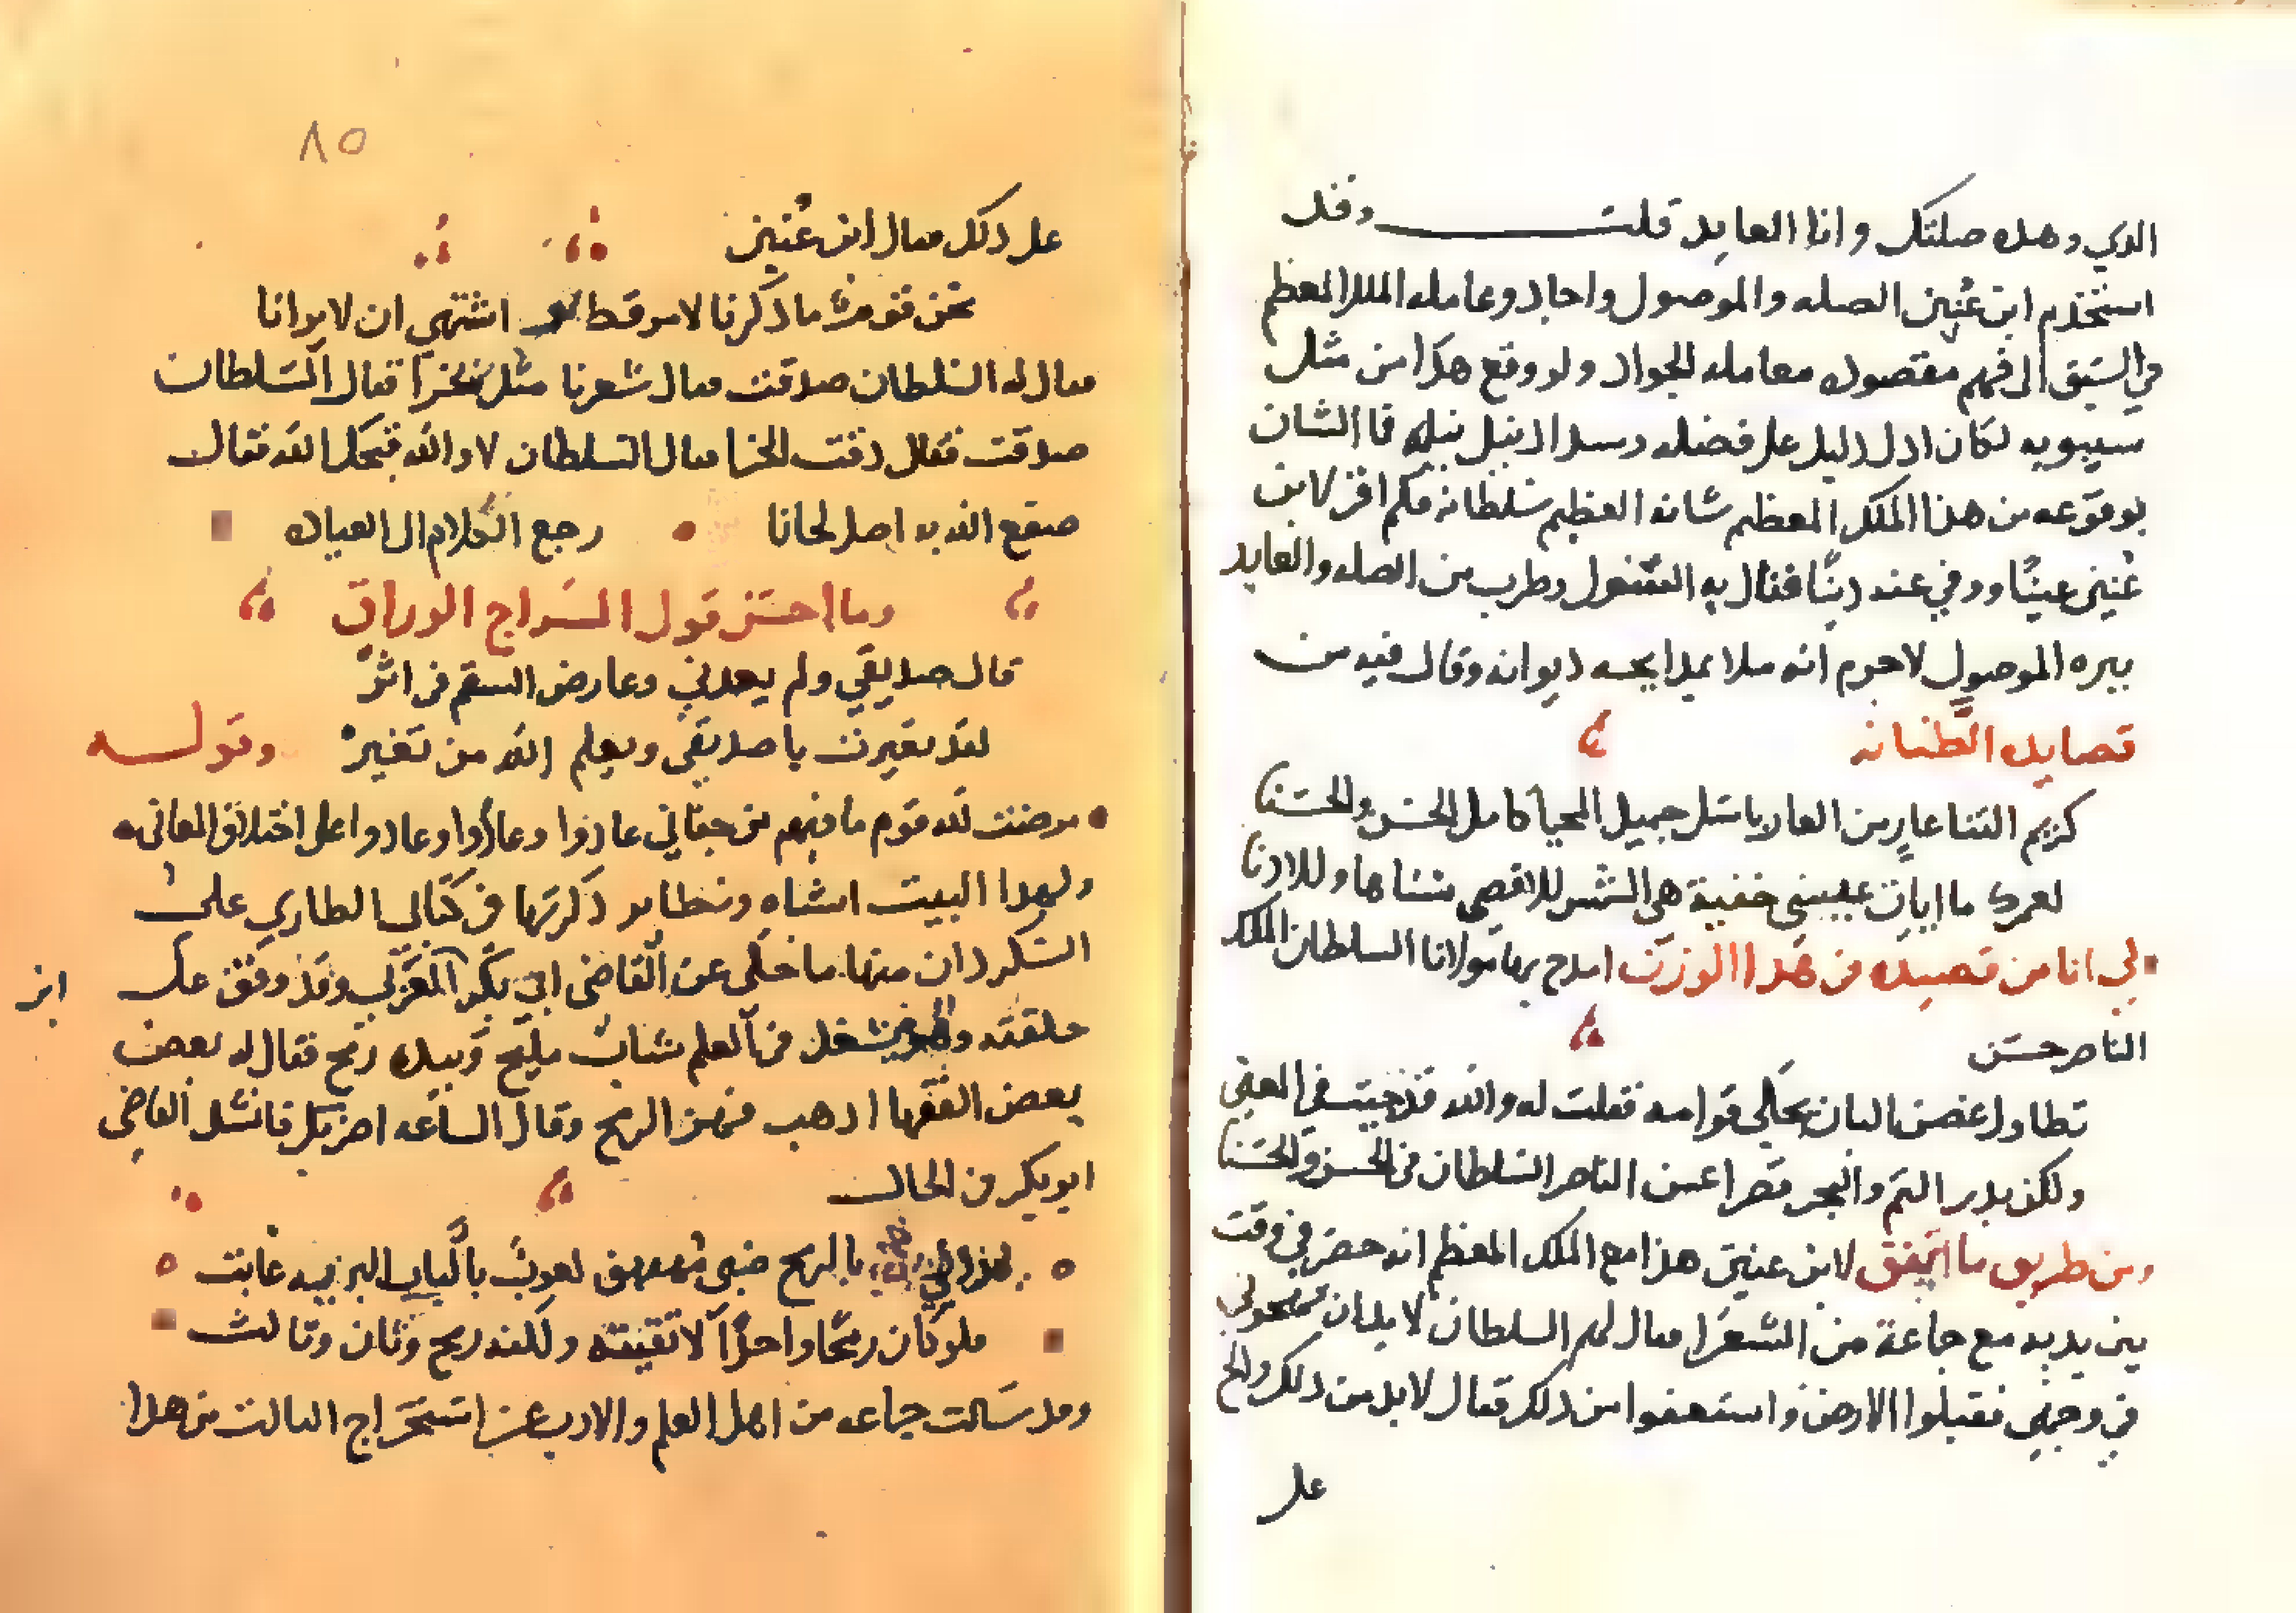 الدي وهده صلتك وانا العايد قلت وقد
استخدم ابن عنين الصله والموصول واجاد وعامله الملك المعظم
في السبق الى فهم مقصوده معامله الجواد ولو وقع هدا من مثل
سيبويه لكان ادل دليل على فضله نبله فا الشان
بوقوعه من هذا الملك المعظم شانه العظيم سلطانه فكم اقر لابن
عنين عينًا ووفي عنه دينًا فنال به السول وطرب من الصله والعايد
ببره الموصول لاجرم انه ملا بمدايحه ديوانه وقال فيه من
قصايده الطنانه
كريم الثنا عارٍ من العار باسل جميل المحيا كامل الحسن والحسنا
لعمرك ما ايات عيسى خفية هي الشمس للاقصى سناها وللادنا
لي انا من قصيده في هدا الوزن امدح بها مولانا السلطان الملك
الناصر حسن
تطاول غصن البان يحكي قوامه فقلت له والله قد جيت في المعنى
ولكن بدر التم والبحر قصرا عن الناصر السلطان في الحسن والحسنا
ومن طريق ما اتفق لابن عنين هذا مع الملك المعظم انه حضر في وقت
بين يديه مع جماعة من الشعرا فقال لهم السلطان لا بد ان تهجوني
في وجهي فقبلوا الارض واستعفوا من ذلك فقال لابد من ذلك والح
على
٨٥
على ذلك فقال ابن عنين
نحن قوم ما ذكرنا لامرء قط اشتهي ان لا يرانا
فقال له السلطان صدقت فقال شعرنا مثل الخرا فقال السلطان
صدقت فقال ذقت الخرا فقال السلطان لا والله قبحك الله فقال
صقع الله به اصل لحانا رجع الكلام الى العياده
وما احسن قول السراج الوراق
قال صديقي ولم يعدني وعارض السقم في اثر
لقد تغيرت يا صديقي ويعلم الله من تغير وقوله
مرضت لله قوم ما فيهم من جفاني عادوا وعادوا وعادوا على اختلاف المعاني
ولهدا البيت اشباه ونظاير ذكرتها في كتابي الطاري على
السكردان منها ما حكي عن القاضي ابي بكر وقد وقف على ابن
حلقته في العلم شاب مليح وبيده رمح فقال له بعض
بعض الفقها ادهب فهز الرمح وقال الساعه اضربك فانشد القاضي
ابو بكر في الحال
بالرمح
فلو كان رمحًا واحدًا لاتقيته ولكنه رمح وثان وثالث
وقد سالت جماعه من اهل العلم والادب عن استخراج الثالث من هدا